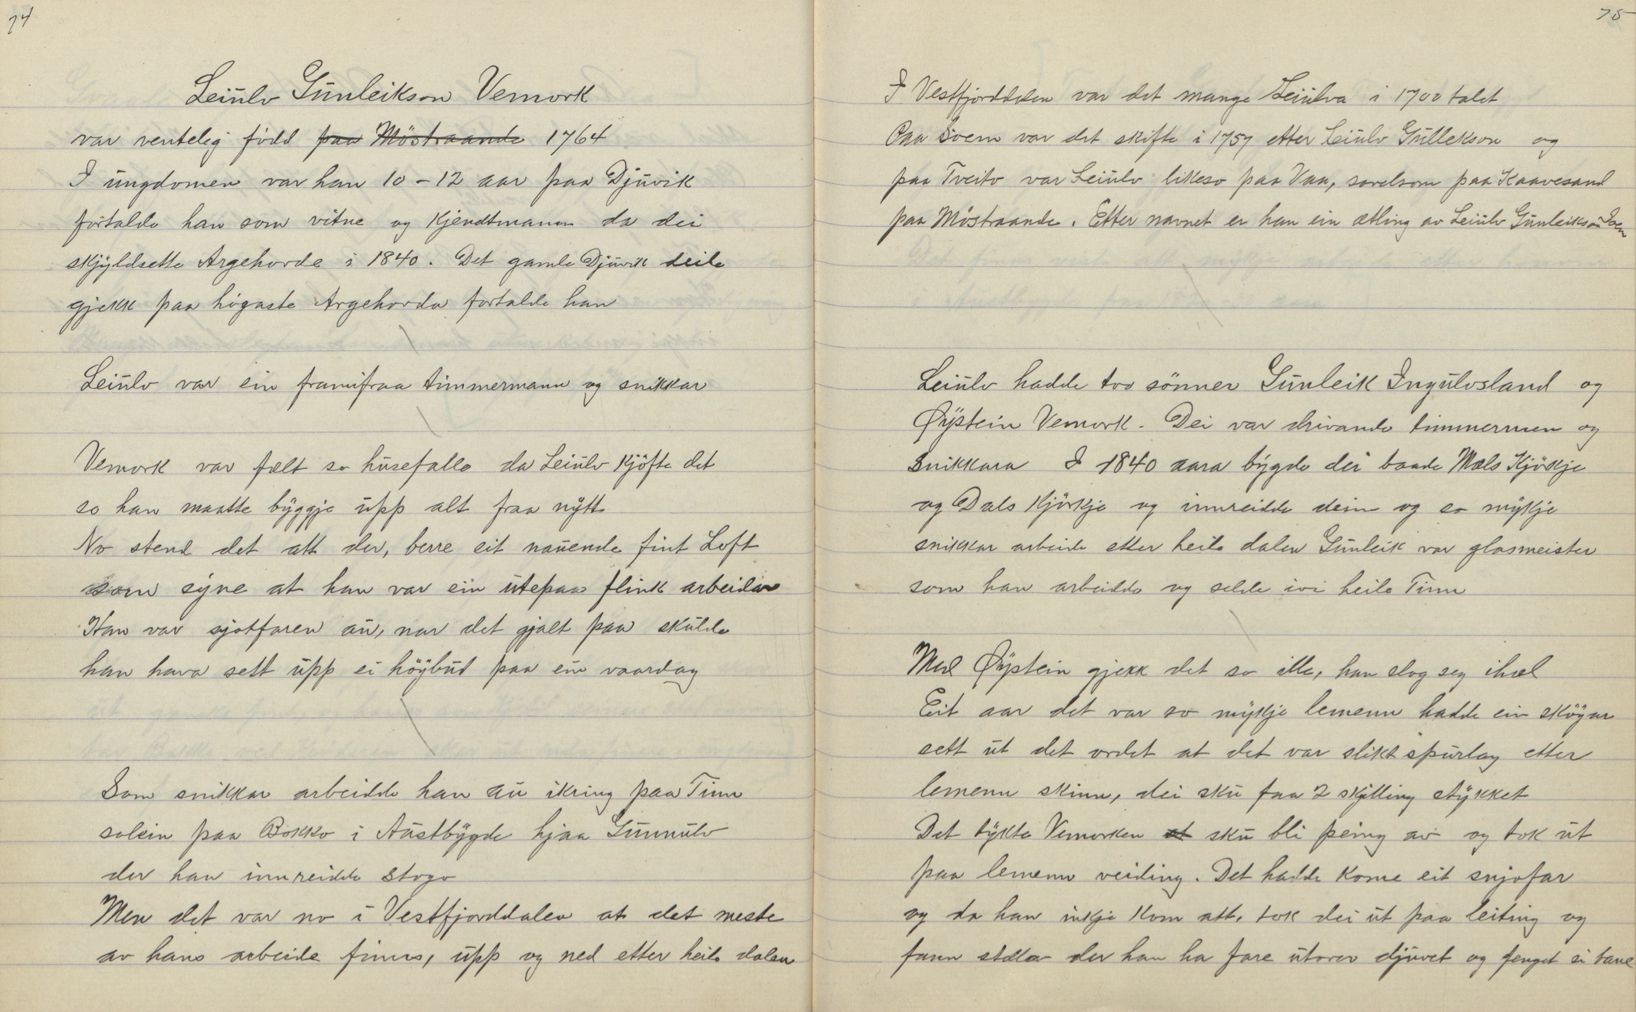 74
Leiulv Gunleikson Vemork
var ventelig född paa Möstraande 1764
I ungdomen var han 10-12 aar paa Djuvik
fortalde han som vitne og Kjendtmann da dei
skyldsette Argehovde i 1840. Det gamle Djuvik deile
gjekk paa högaste Argehovda fortalde han
Leiulv var ein framifraa timmermann og snikkar
Vemork var fælt so husefalle da Leiulv Kjöfte det
so han maatte byggje upp alt fraa nytt
No stend det att der, berre eit nauende fint Loft
som syne at han var ein utepaa flink arbeidar
Han var sjotfaren au, nar det gjalt paa skulde
han hava sett upp ei höybud paa ein vaardag
Som snikkar arbeidde han au ikring paa Tinn
solein paa Bokko i Austbygde hjaa Gunnulv
der han innreidde stogo
Men det var no i Vestfjorddalen at det meste
av hans arbeide finns, upp og ned etter heile dalen
75
I Vestfjorddalen var det mange Leiulva i 1700 talet
Paa Svem var det skifte i 1757 etter Leiulv Gullekson og
paa Tveito var Leiulv likeso paa Vaa, sovelsom paa Kaavesand
paa Möstraande. Etter navnet er han ein ætling av Leiulv Gunleikson
Leiulv hadde tvo sönner Gunleik Ingulvsland og
Øystein Vemork. Dei var drivande timmermen og
Snikkara I 1840 aara bygde dei baade Mæls Kjörkje
og Dals Kjörkje og innreidde dein og so mykje
snikkar arbeide etter heile dalen Gunleik var glasmeister
som han arbeidde og selde ivi heile Tinn
Med Øystein gjekk det so ille, han slog seg ihæl
Eit aar det var so mykje lemenn hadde ein sköyar
sett ut det ordet at det var slikt spurlag etter
lemenn skinn, dei sku faa 2 skjilling stykket
Det tykte Vemorken at sku bli peing av og tok ut
paa lemenn veiding. Det hadde kome eit snjofar
og da han inkje kom att, tok dei ut paa leiting og
fann stælar der han ha fare utover djuvet og fenget si bane